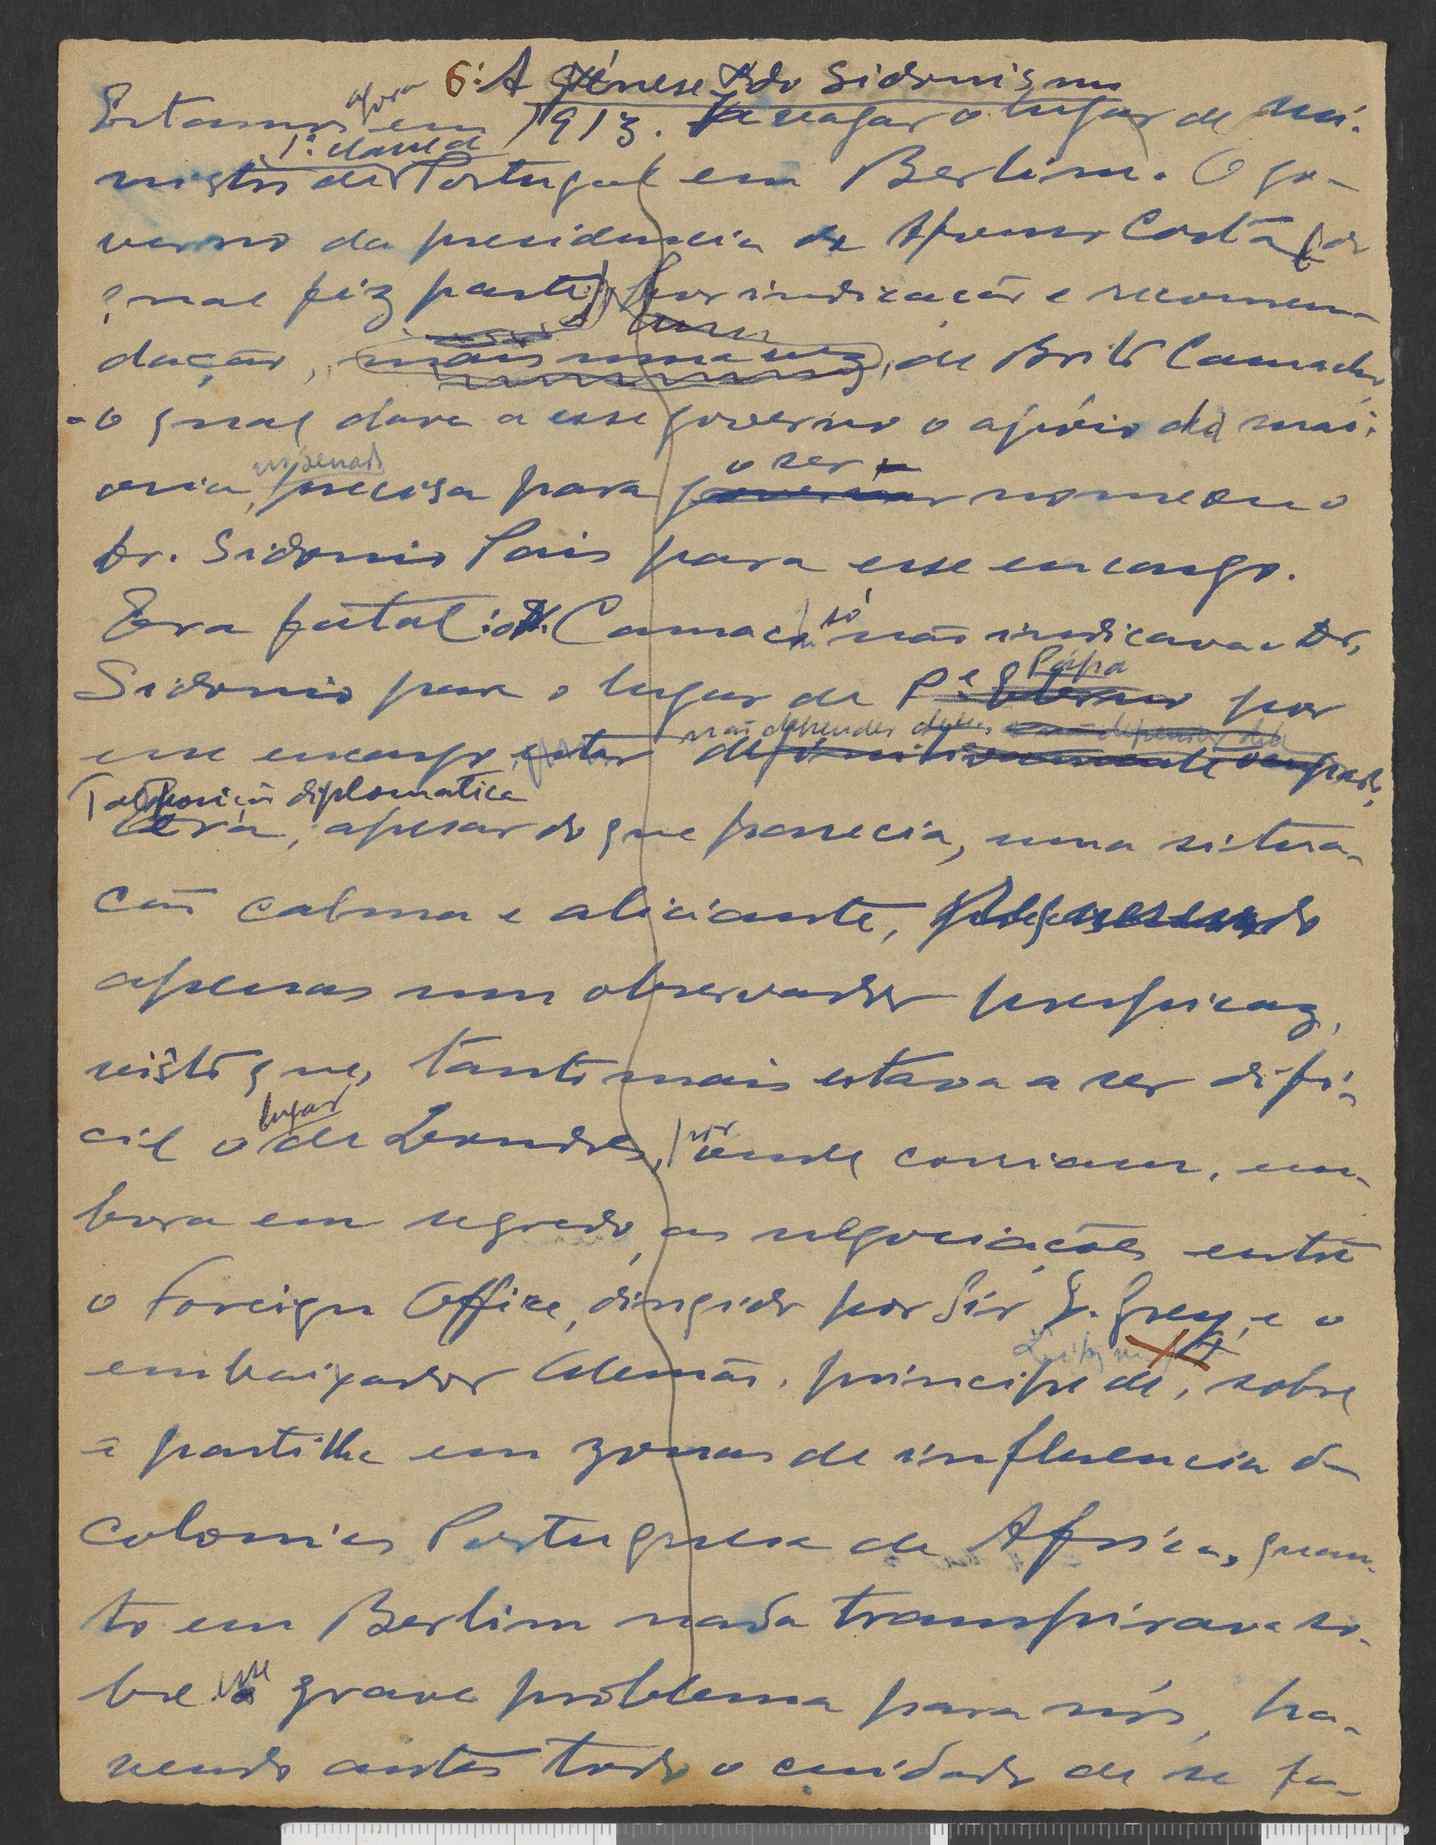 6º A Génese do Sidonismo
Estamos agora em 1913. Ia vagar o lugar de mi-
nistro de 1ª classe de Portugal em Berlim. O go-
verno da presidencia de Afonso Costa (do
qual fiz parte) por indicação e recomen-
dação, mais uma vez, de Brito Camacho,
-o qual dava a esse governo o apôio da mai-
oria, no senado precisa para o ser - nomeou o
Dr. Sidonio Pais para esse encargo.
Era fatal: o Camacho só não indicava o Dr.
Sidonio para o lugar de Papa por
esse encargo não depender deles
Tal posição diplomatica
Era, apesar do que parecia, uma situa-
ção calma e aliciante,
apenas um observador perspicaz,
visto que, tanto mais estava a ser difi-
cil o lugar de Londres, por onde corriam, em-
bora em segredo, as negociações entre
o Foreign Office, dirigido por Sir E. Grey, e o
embaixador Alemão, principe de, sobre
a partilha em zonas de influencia da
colonias Portuguesa de Africa, quan-
to em Berlim nada transpirava so-
bre esse grave problema para nós, ha-
vendo antes todo o cuidado de se fa-